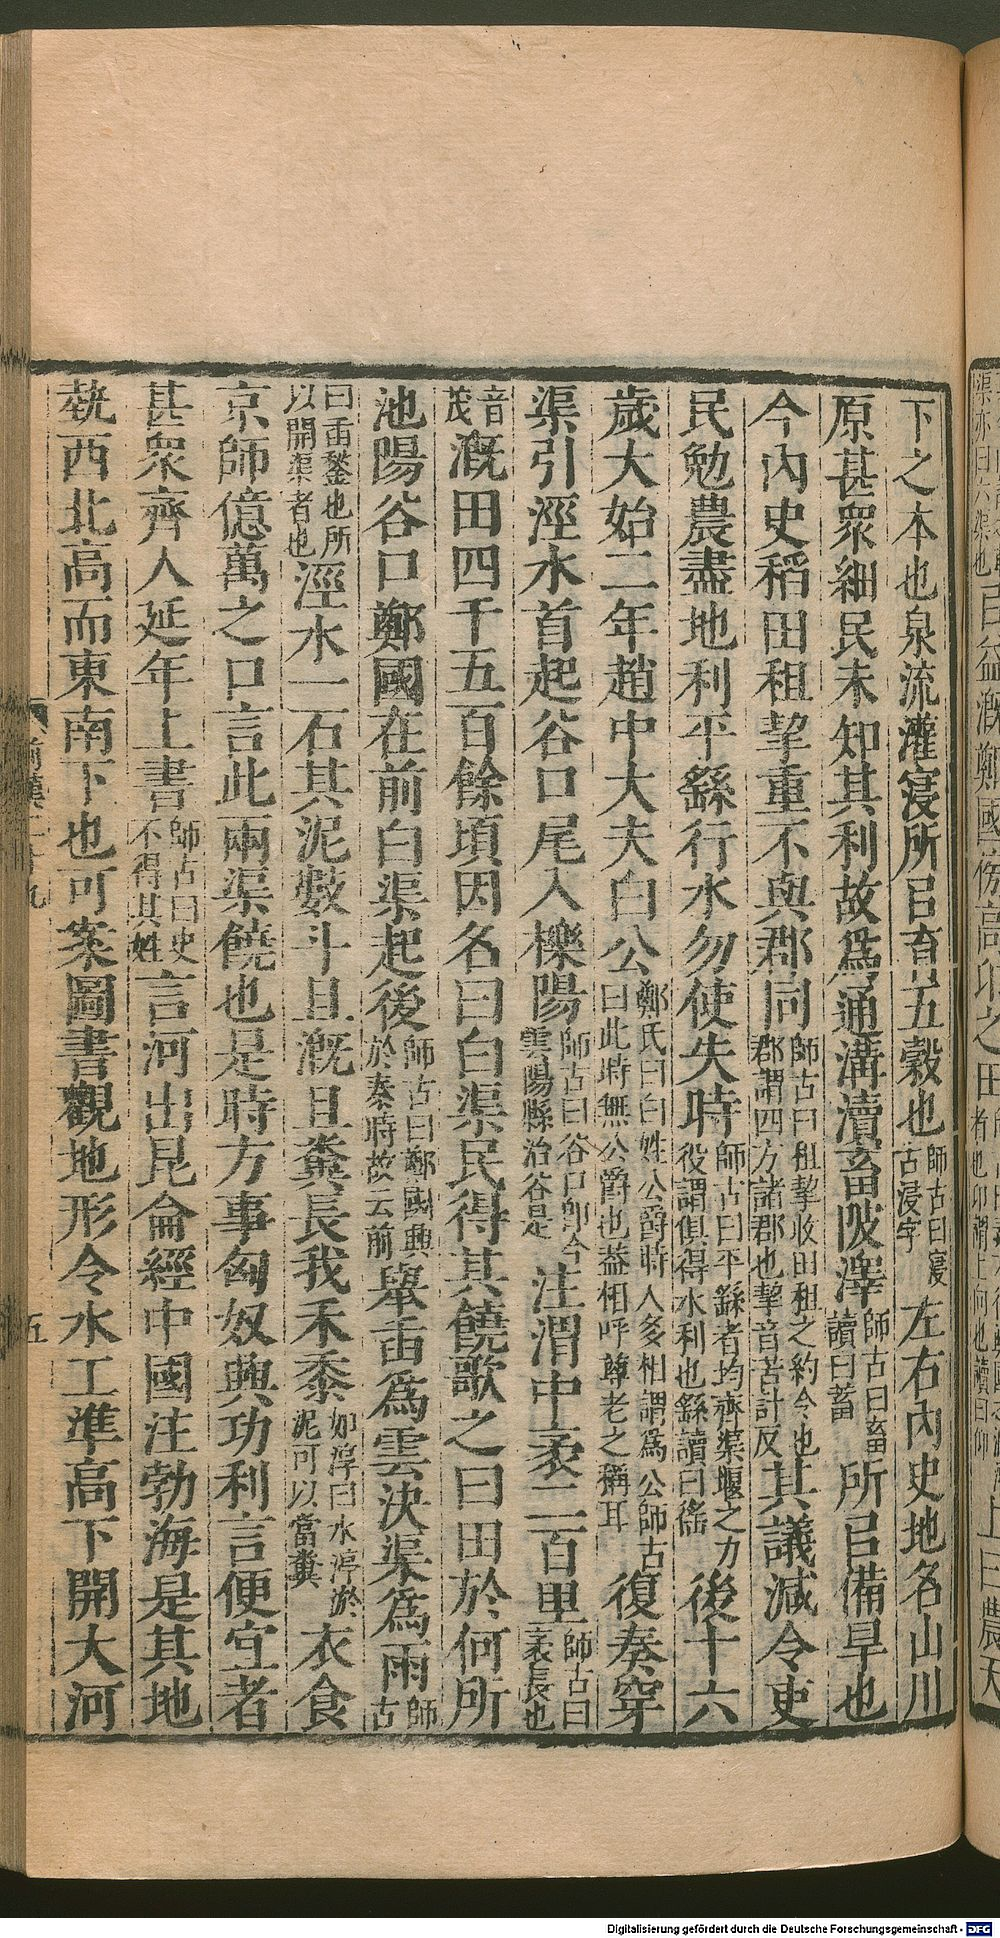 下之本也泉流灌寖所㠯育五穀也師古曰寖古浸字左右內史地名山川
原甚眾細民未知其利故爲通溝瀆畜陂澤師古曰畜讀曰蓄所㠯備旱也
今內史稻田租挈重不與郡同師古曰租挈收田租之約令也郡謂四方諸郡也挈音苦計反其議減令吏
民勉農盡地利平繇行水勿使失時師古曰平繇者均齊渠堰之力役謂俱得水利也繇讀曰徭後十六
歲大始二年趙中大夫白公鄭氏曰白姓公爵時人多相謂爲公師古曰此時無公爵也蓋相呼尊老之稱耳復奏穿
渠引涇水首起谷口尾入櫟陽師古曰谷口卽今雲陽縣治谷是注渭中袤二百里師古曰袤長也
音茂溉田四千五百餘頃因名曰白渠民得其饒歌之曰田於何所
池陽谷口鄭國在前白渠起後師古曰鄭國興於秦時故云前舉臿爲雲決渠爲雨師古
曰臿鍫也所以開渠者也涇水一石其泥數斗且溉且糞長我禾黍如淳曰水渟淤泥可以當糞衣食
京師億萬之口言此兩渠饒也是時方事匈奴興功利言便宜者
甚眾齊人延年上書師古曰史不得其姓言河出昆侖經中國注勃海是其地
埶西北高而東南下也可案圖書觀地形令水工準高下開大河
前漢二十九
五
Digitalisierung gefördert durch die Deutsche Forschungsgemeinschaft - DFG